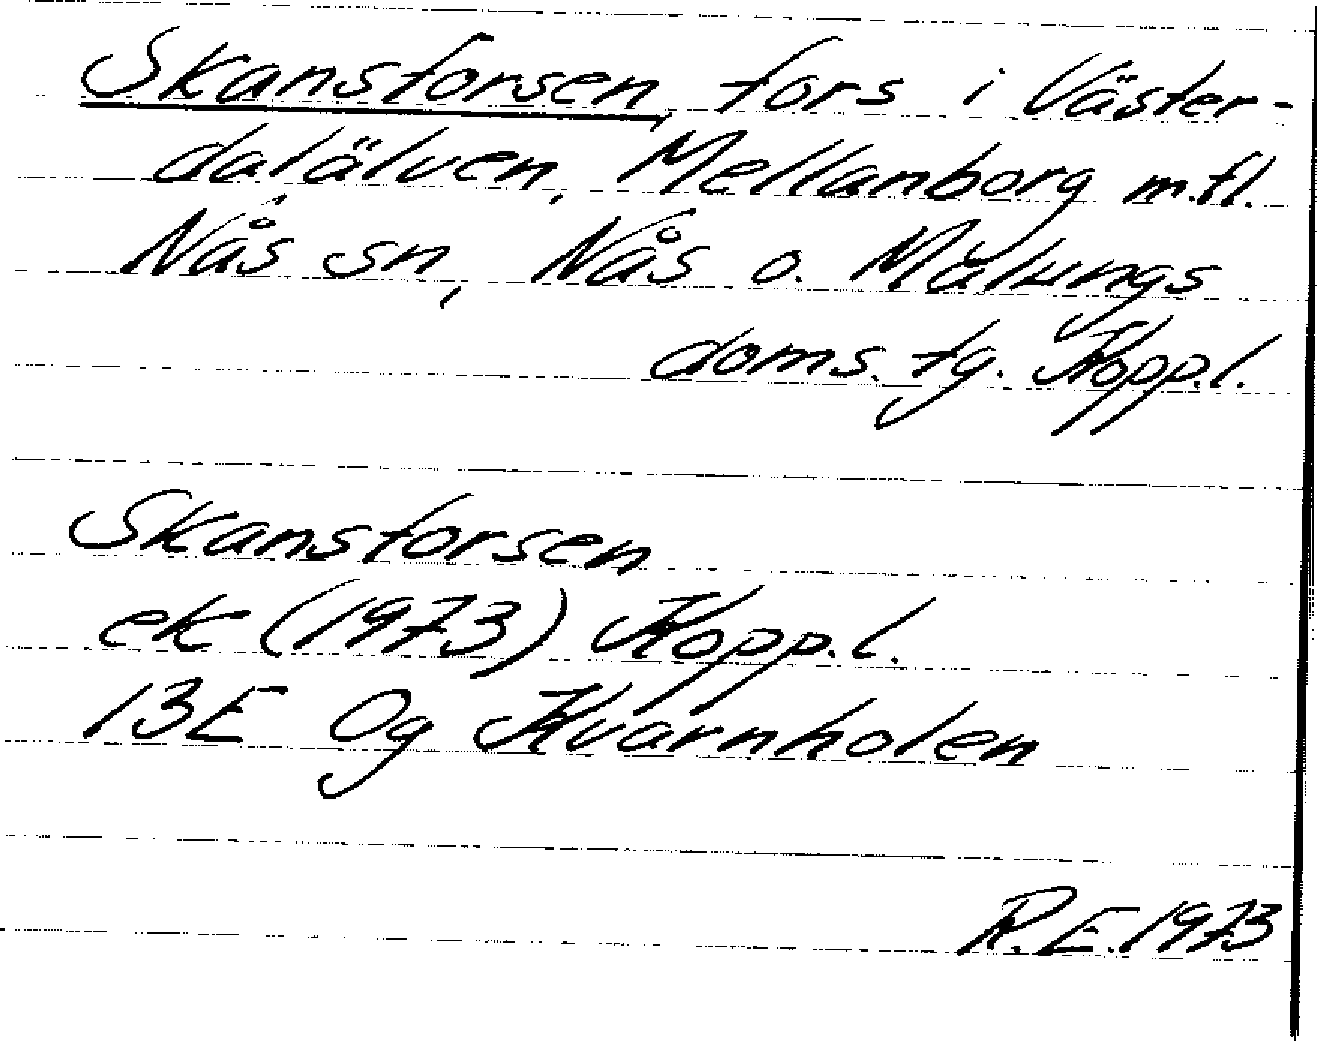 Skansforsen, fors i Väster-
dalälven, Mellanborg m.fl.
Nås sn, Nås o. Malungs
doms. tg. Kopp.l.
Skansforsen
ek (1973) Kopp.l.
13E 0g Kvarnholen
R.E.1973